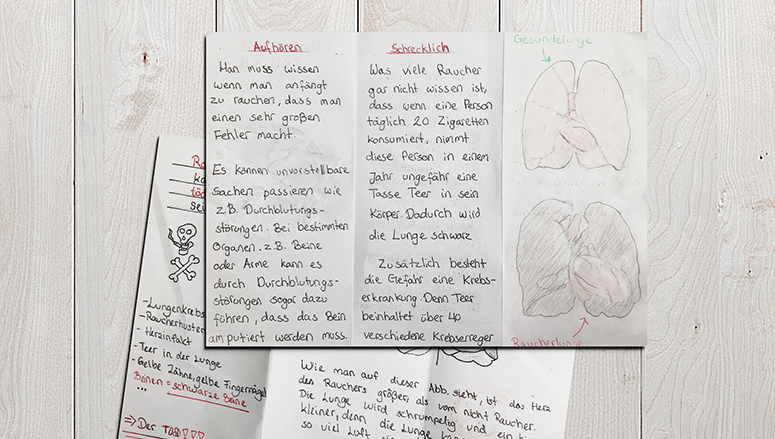 Aufhören
Man muss wissen
wenn man anfängt
zu rauchen, dass man
einen sehr großen
Fehler macht.
Es können unvorstellbare
sachen passieren wie
z.B. Durchblutungs-
störungen. Bei bestimmten
Organen. z.B. Beine
oder Arme kann es
durch Durchblutungs-
störungen sogar dazu
führen, dass das Bein
amputiert werden muss.
Schrecklich
Was viele Raucher
gar nicht wissen ist,
dass wenn eine Person
täglich 20 Zigaretten
konsumiert, nimmt
diese Person in einem
Jahr ungefähr eine
Tasse Teer in sein
Körper. Dadurch wird
die Lunge schwarz
Zusätzlich besteht
die Gefahr eine Krebs-
erkrankung. Denn Teer
beinhaltet über 40
verschiedene Krebserreger
Gesundelunge
Raucherlunge
- Lungenkrebs
- Raucherhusten
- Herzinfakt
- Teer in der Lunge
- Gelbe Zähne, gelbe Fingernägel
Bönen = schwarze Beine
...
⇒ Der TOD!!!
Wie man auf dieser Abb. sieht, ist das Herz
des Rauchers größer als vom nicht Raucher.
Die Lunge wird schrumpelig und ein
kleiner, denn die Lunge
so viel Luft